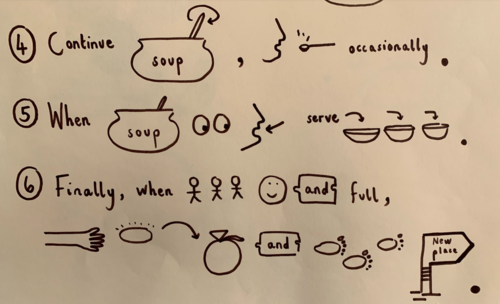 4 Continue soup , occasionally .
5 When soup serve .
6 Finally, when and full,
and New place .